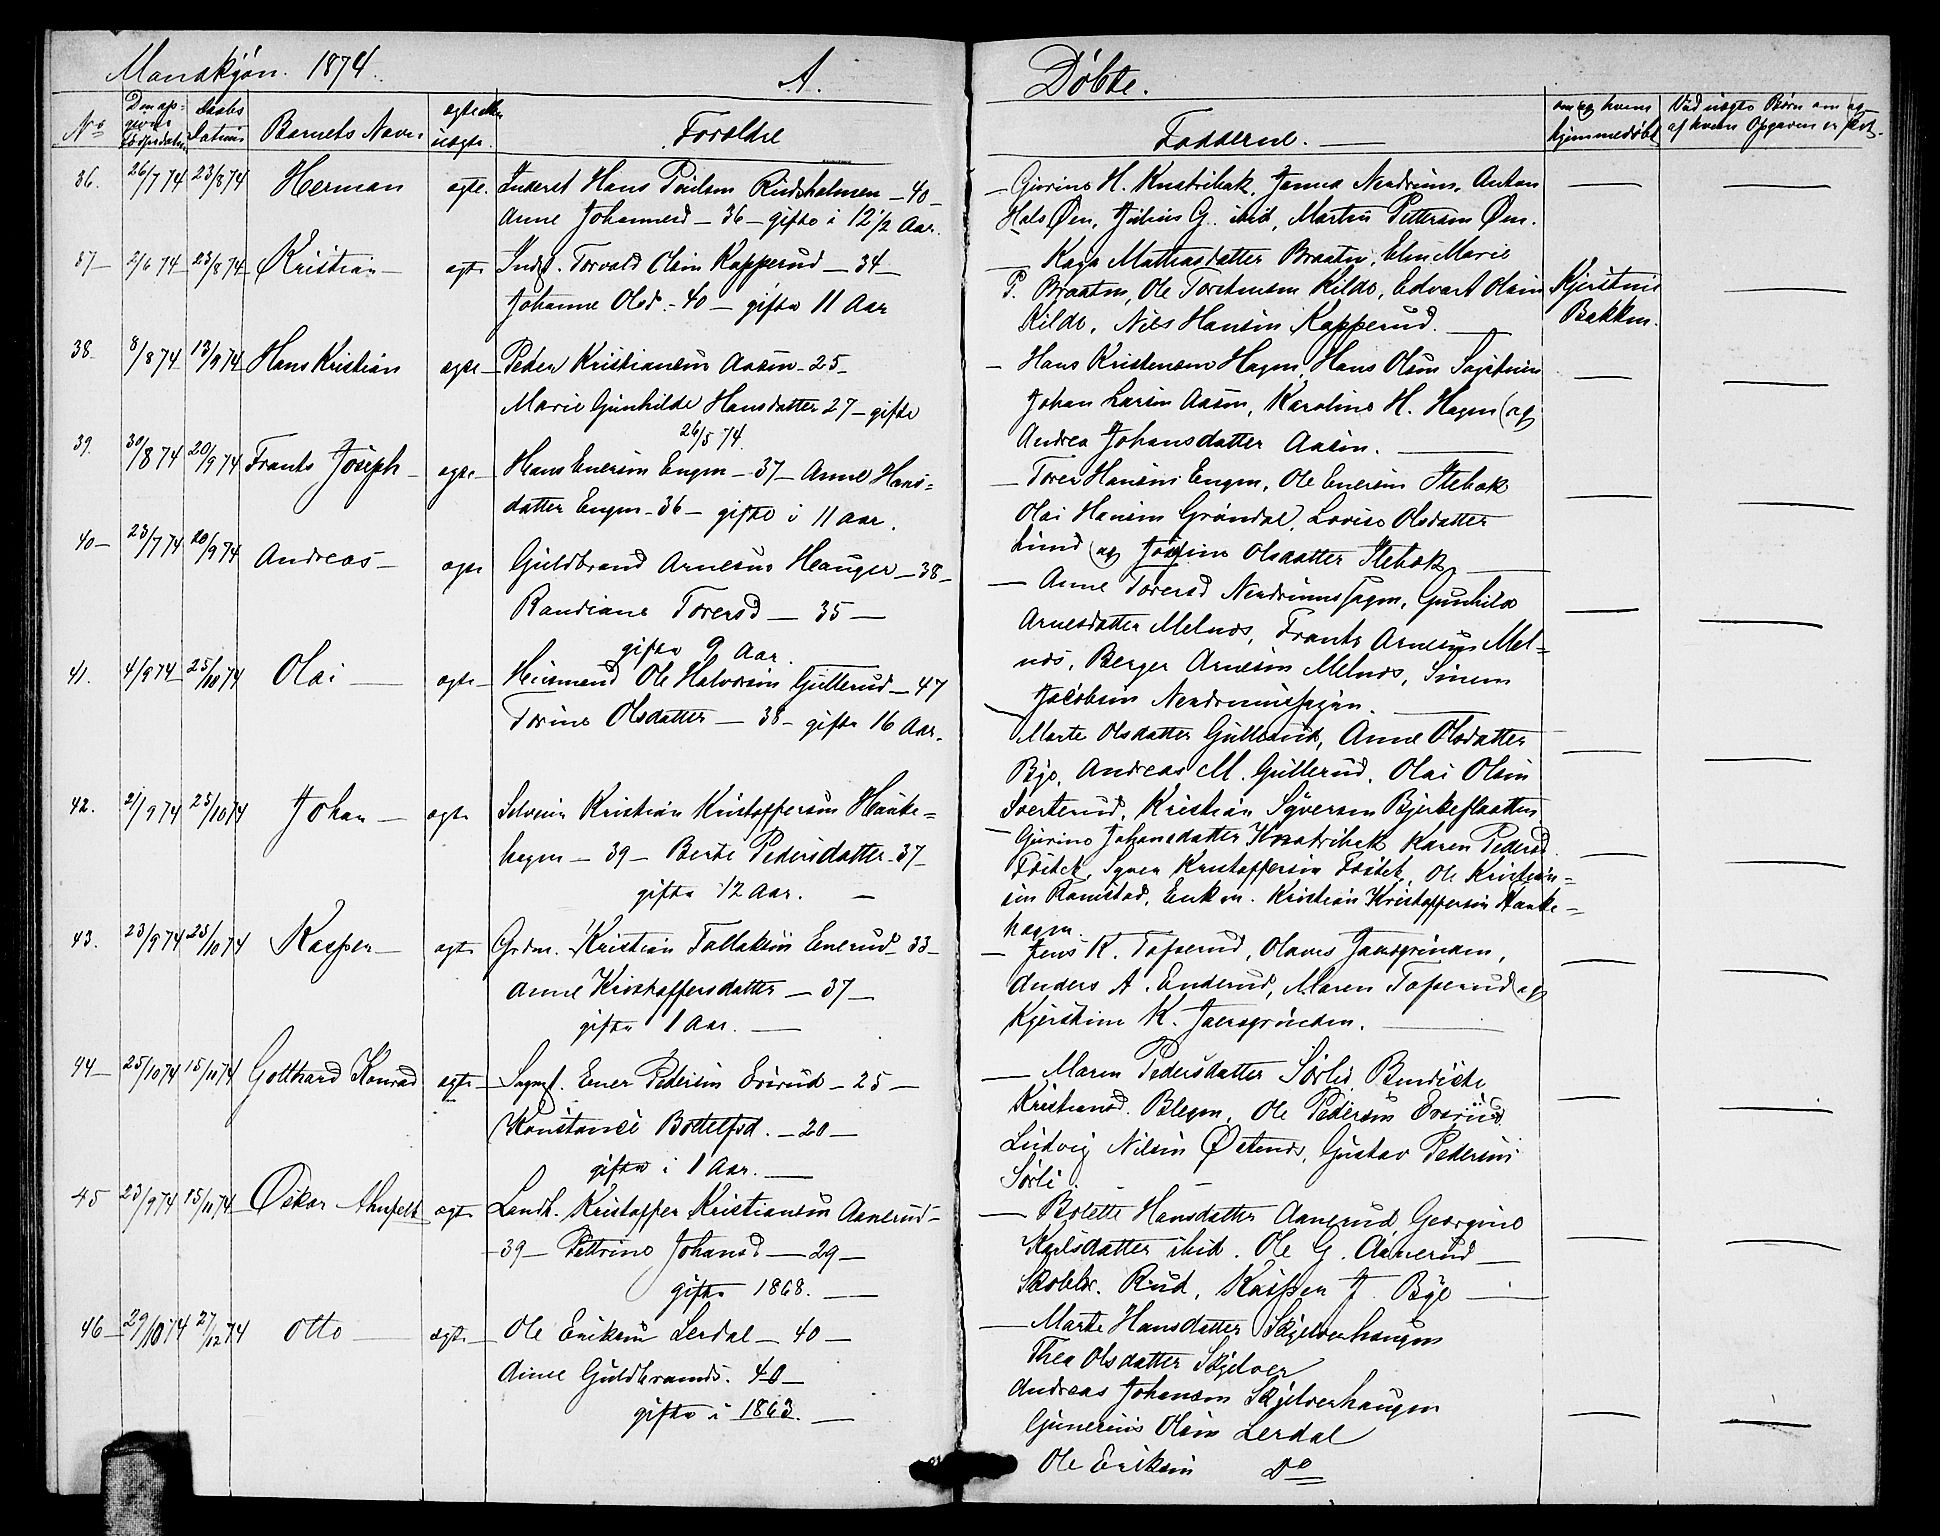 Mandkjøn. 1874. A. Døbte.
No Den opgivne Fødselsdatum Daabsdatum Barnets Navn ægte eller uægte. Forældre Faddere. om og hvem hjemmedøbt Ved uægte Børn om og af hvem Opgaven er sket.
36. 26/7 74 23/8 74 Herman ægte. Inderst Hans Poulsen Rudsholmen – 40 –
Anne Johannesd – 36 – gifte i 12 1/2 Aar.
– H. Knatribak, Nendrum, Anton
Hals Øen, Julius G. ibid, Martin Pettersen Øen.
37 – 2/6 74 23/8 74 Kristian – ægte Inds. Torvald Olsen Kapperud – 34 –
Johanne Olsd. – 40 – gifte 11 Aar
Kaja Mathiasdatter Braaten, Elen Marie
P. Braaten, Ole Torstensen Kilde, Edvart Olsen
Kilde, Nils Hansen Kapperud. –
Kjerstine
Bakken.
38. 8/8 74 13/9 74 Hans Kristian ægte – Peder Kristiansen Aasen – 25 –
Marie Gunhilde Hansdatter 27 – gifte
26/5 74.
– Hans Kristensen Hagen, Hans Olsen Sagstuen
Johan Larsen Aasen, Karoline H. Hagen og
Andrea Johansdatter Aasen. –
39. 30/8 74 20/9 74 Frants Joseph – ægte – Hans Enersen Engen – 37 – Anne Hans=
datter Engen – 36 – gifte i 11 Aar.
– Torer Hansen Engen, Ole Enersen Stebæk
Olai Hansen Grøndal, Lovise Olsdatter
Lund og Josefine Olsdatter Stebæk –
40 – 23/7 74 20/9 74 Andreas – ægte Guldbrand Arnesen Hauger – 38 –
Randiane Torersd – 35 –
gifte 9 Aar.
– Anne Torersd Nendrumshagen, Gunhild
Arnesdatter Melnæs, Frants Arnesen Mel=
næs, Berger Arnesen Melnæs, Simen
Jacobsen
41. 4/9 74 25/10 74 Olai – ægte – Huusmand Ole Halvorsen Gullerud – 47
Torine Olsdatter – 38 – gifte 16 Aar.
Marte Olsdatter Gullerud, Anne Olsdatter
Bye, Andreas M. Gullerud, Olai Olsen
Sverterud, Kristian Syversen Bjerkeflaatten
42. 2/9 74 25/10 74 Johan – ægte Selveier Kristian Kristoffersen Hauke=
hagen – 39 – Berte Pedersdatter – 37 –
gifte 12 Aar. –
– Johansdatter Knatribæk Karen Pedersd
Kristoffersen Ole Kristian=
sen Ramstad, Enkem. Kristian Kristoffersen Hauke=
hagen.
43. 23/9 74 25/10 74 Kasper – ægte Grdm. Kristian Tollaksen Enerud – 33 –
Anne Kristoffersdatter – 37 –
gifte 1 Aar. –
– Jens K. Toserud, Olaves Jaersgrinden,
Anders A. Enderud, Maren Toserud og
Kjerstine K. Jaersgrinden.
44 – 25/10 74 15/11 74 Gotthard Konrad ægte – Sagmf. Ener Pedersen Evirud – 25 –
Konstance Bottelfsd. – 20 –
gifte i 1 Aar. –
– Maren Pedersdatter Sørli, Bendicte
Kristiansd. Blegen, Ole Pedersen
Ludvig Nilsen Østenæs, Gustav Pedersen
Sørli.
45 23/9 74 15/11 74 Oskar Ahnfelt ægte Landh. Kristoffer Kristiansen Aanerud –
– 39 – Pettrine Johansd – 29 –
gifte 1868. –
– Bolette Hansdatter Aanerud, Georgine
Karlsdatter ibid. Ole G. Aanerud –
Rud, Kasper J. Bye –
46 – 29/10 74 27/12 74 Otto – ægte – Ole Eriksen Lerdal – 40 –
Anne Guldbrands. 40 –
gifte i 1863. –
– Marte Hansdatter Skjelverhaugen
Thea Olsdatter Skjelver
Andreas Johansen Skjelverhaugen
Gunerius Olsen Lerdal
Ole Eriksen Do